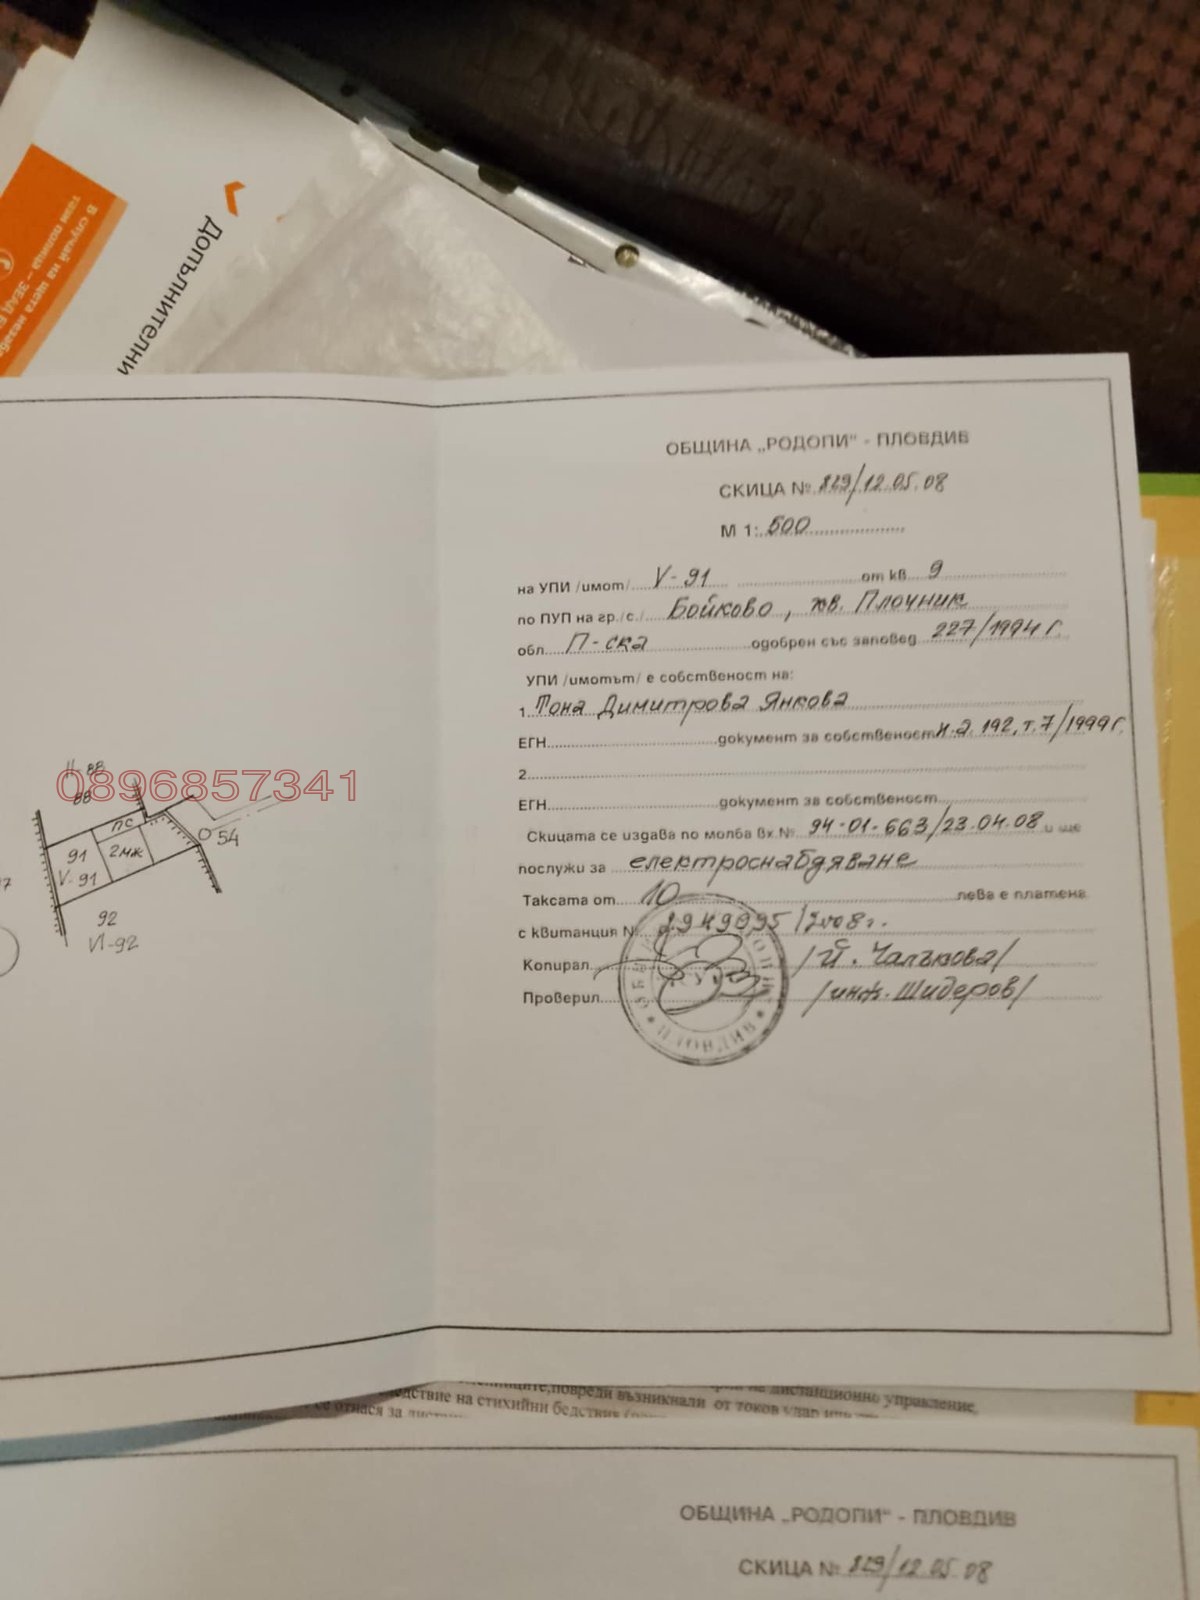 В случай на щета незаба
тази полица – ЗЕАД Б
Допълнителни
ОБЩИНА „РОДОПИ" - ПЛОВДИВ
СКИЦА № 829/12.05.08
М 1: 500
на УПИ /имот/ V-91 от кв. 9
по ПУП на гр./с./ Бойково, кв. Плочник
обл. П-ска одобрен със заповед 227/1994 г.
УПИ /имотът/ е собственост на:
1. Тона Димитрова Янкова
ЕГН документ за собственост н.а. 192, т.7/1999 г.
2.
ЕГН документ за собственост
Скицата се издава по молба вх.№ 94-01-663/23.04.08 и ще
послужи за електроснабдяване
Таксата от 10 лева е платена
с квитанция № 2949095/2008 г.
Копирал /Й. Чалъкова/
Проверил /инж. Шидеров/
ПЛОВДИВ
II-88
88
0896857341
ПС
2МЖ
91
V-91
54
92
VI-92
повреди възникнали от токов удар
дистанционно управление,
едствие на стихийни бедствия
се отнася за
ОБЩИНА „РОДОПИ" - ПЛОВДИВ
СКИЦА № 829/12.05.08